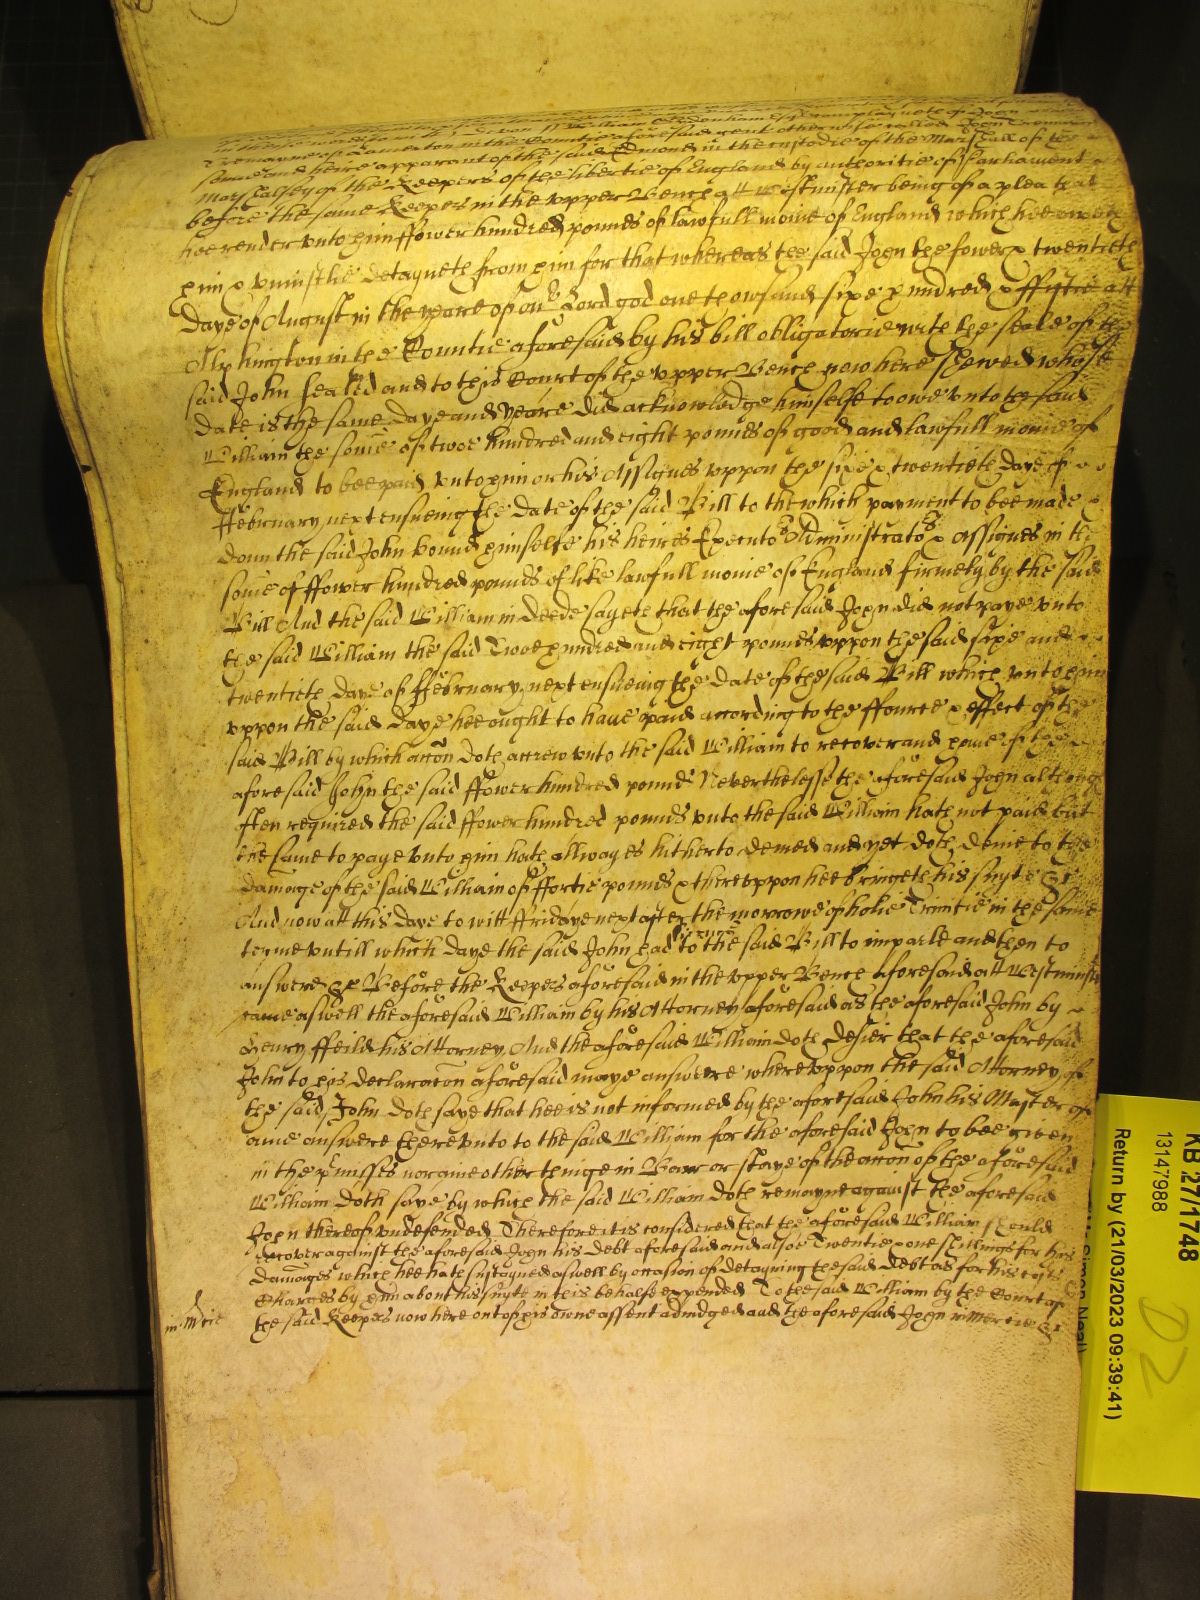 in these words to witt William
Tremayne of Lamerton in the Countie aforesaid gent otherwise called John Tremayne
sonne and heire apparant of the said Edmond in the custodie of the Marshall of the
Marshalsey of the Keepers of the libertie of England by authoritie of Parliament
before the same Keepers in the vpper Bench att Westminster being of a plea that
hee render vnto him ffower hundred pounds of lawfull monie of England which hee oweth
him & vniustlie detayneth from him for that whereas the said John the fower & twentieth
daye of August in the yeare of our Lord god one thowsand sixe hundred & ffiftie att
in the Countie aforesaid by his bill obligatorie with the seale of the
said John sealed and to this Court of the vpper Bench now here shewed whose
date is the same daye and yeare did acknowledge himselfe to owe vnto the said
William the some of twoe hundred and eight pounds of good and lawfull monie of
England to bee paid vnto him or his Assignes vppon the sixe & twentieth daye of
ffebruary next ensueing the date of the said Bill to the which payment to bee made
donn the said John bound himselfe his heires Executors Administrators & Assignes in the
some of ffower hundred pounds of like lawfull monie of England firmely by the said
Bill And the said William in deede sayeth that the aforesaid John did not paye vnto
the said William the said Twoe hundred and eight pounds vppon the said sixe and
twentieth daye of ffebruary next ensueing the date of the said Bill which vnto him
vppon the said daye hee ought to haue paid according to the fforme & effect of the
said Bill by which accon doth accrew vnto the said William to recover and haue of the
aforesaid John the said ffower hundred pounds Neverthelesse the aforesaid John although
often required the said ffower hundred pounds vnto the said William hath not paid but
the same to paye vnto him hath allwayes hitherto denied and yet doth denie to the
damage of the said William of ffortie pounds & therevppon hee bringeth his suyte &c
And now att this daye to witt ffridaye next after the morrowe of holie Trinitie in the same
terme vntill which daye the said John had licence to the said Bill to imparle and then to
answere &c Before the Keepers aforesaid in the vpper Bench aforesaid att Westminster
came aswell the aforesaid William by his Attorney aforesaid as the aforesaid John by
Henry ffeild his Attorney And the aforesaid William doth desier that the aforesaid
John to his declaracon aforesaid maye answere wherevppon the said Attorney of
the said John doth saye that hee is not informed by the aforesaid John his Master of
anie answere therevnto to the said William for the aforesaid John to bee given
in the premisses nor anie other thinge in Barr or staye of the accon of the aforesaid
William doth saye by which the said William doth remayne against the aforesaid
John thereof vndefended Therefore it is considered that the aforesaid William should
recover against the aforesaid John his debt aforesaid and alsoe Twentie & one shillings for his
damages which hee hath sustayned aswell by occasion of detayning the said debt as for his costs
Charges by him about his suyte in this behalfe expended To the said William by the Court of
the said Keepers now here out of his owne assent adiudged and the aforesaid John in Mercie &c
in Mcie
KB 27/1748
13147988
Return by (21/03/2023 09:39:41)
Simon Neal)
D2